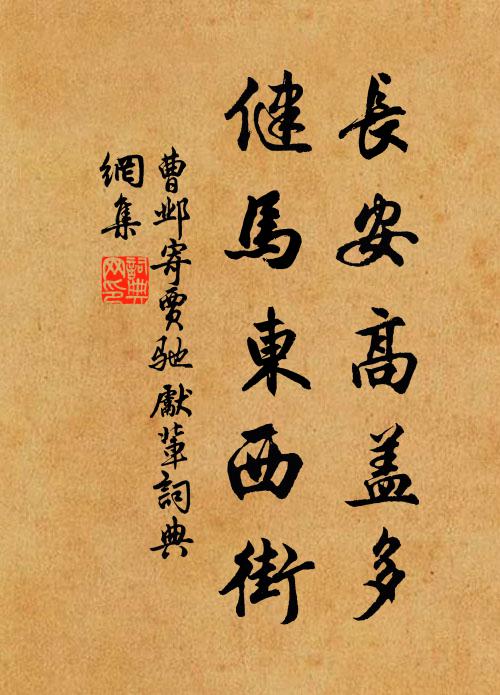 長安高盖多
健馬東西街
曹邺寄賈馳獻萃詞典
網集
詞典
网印